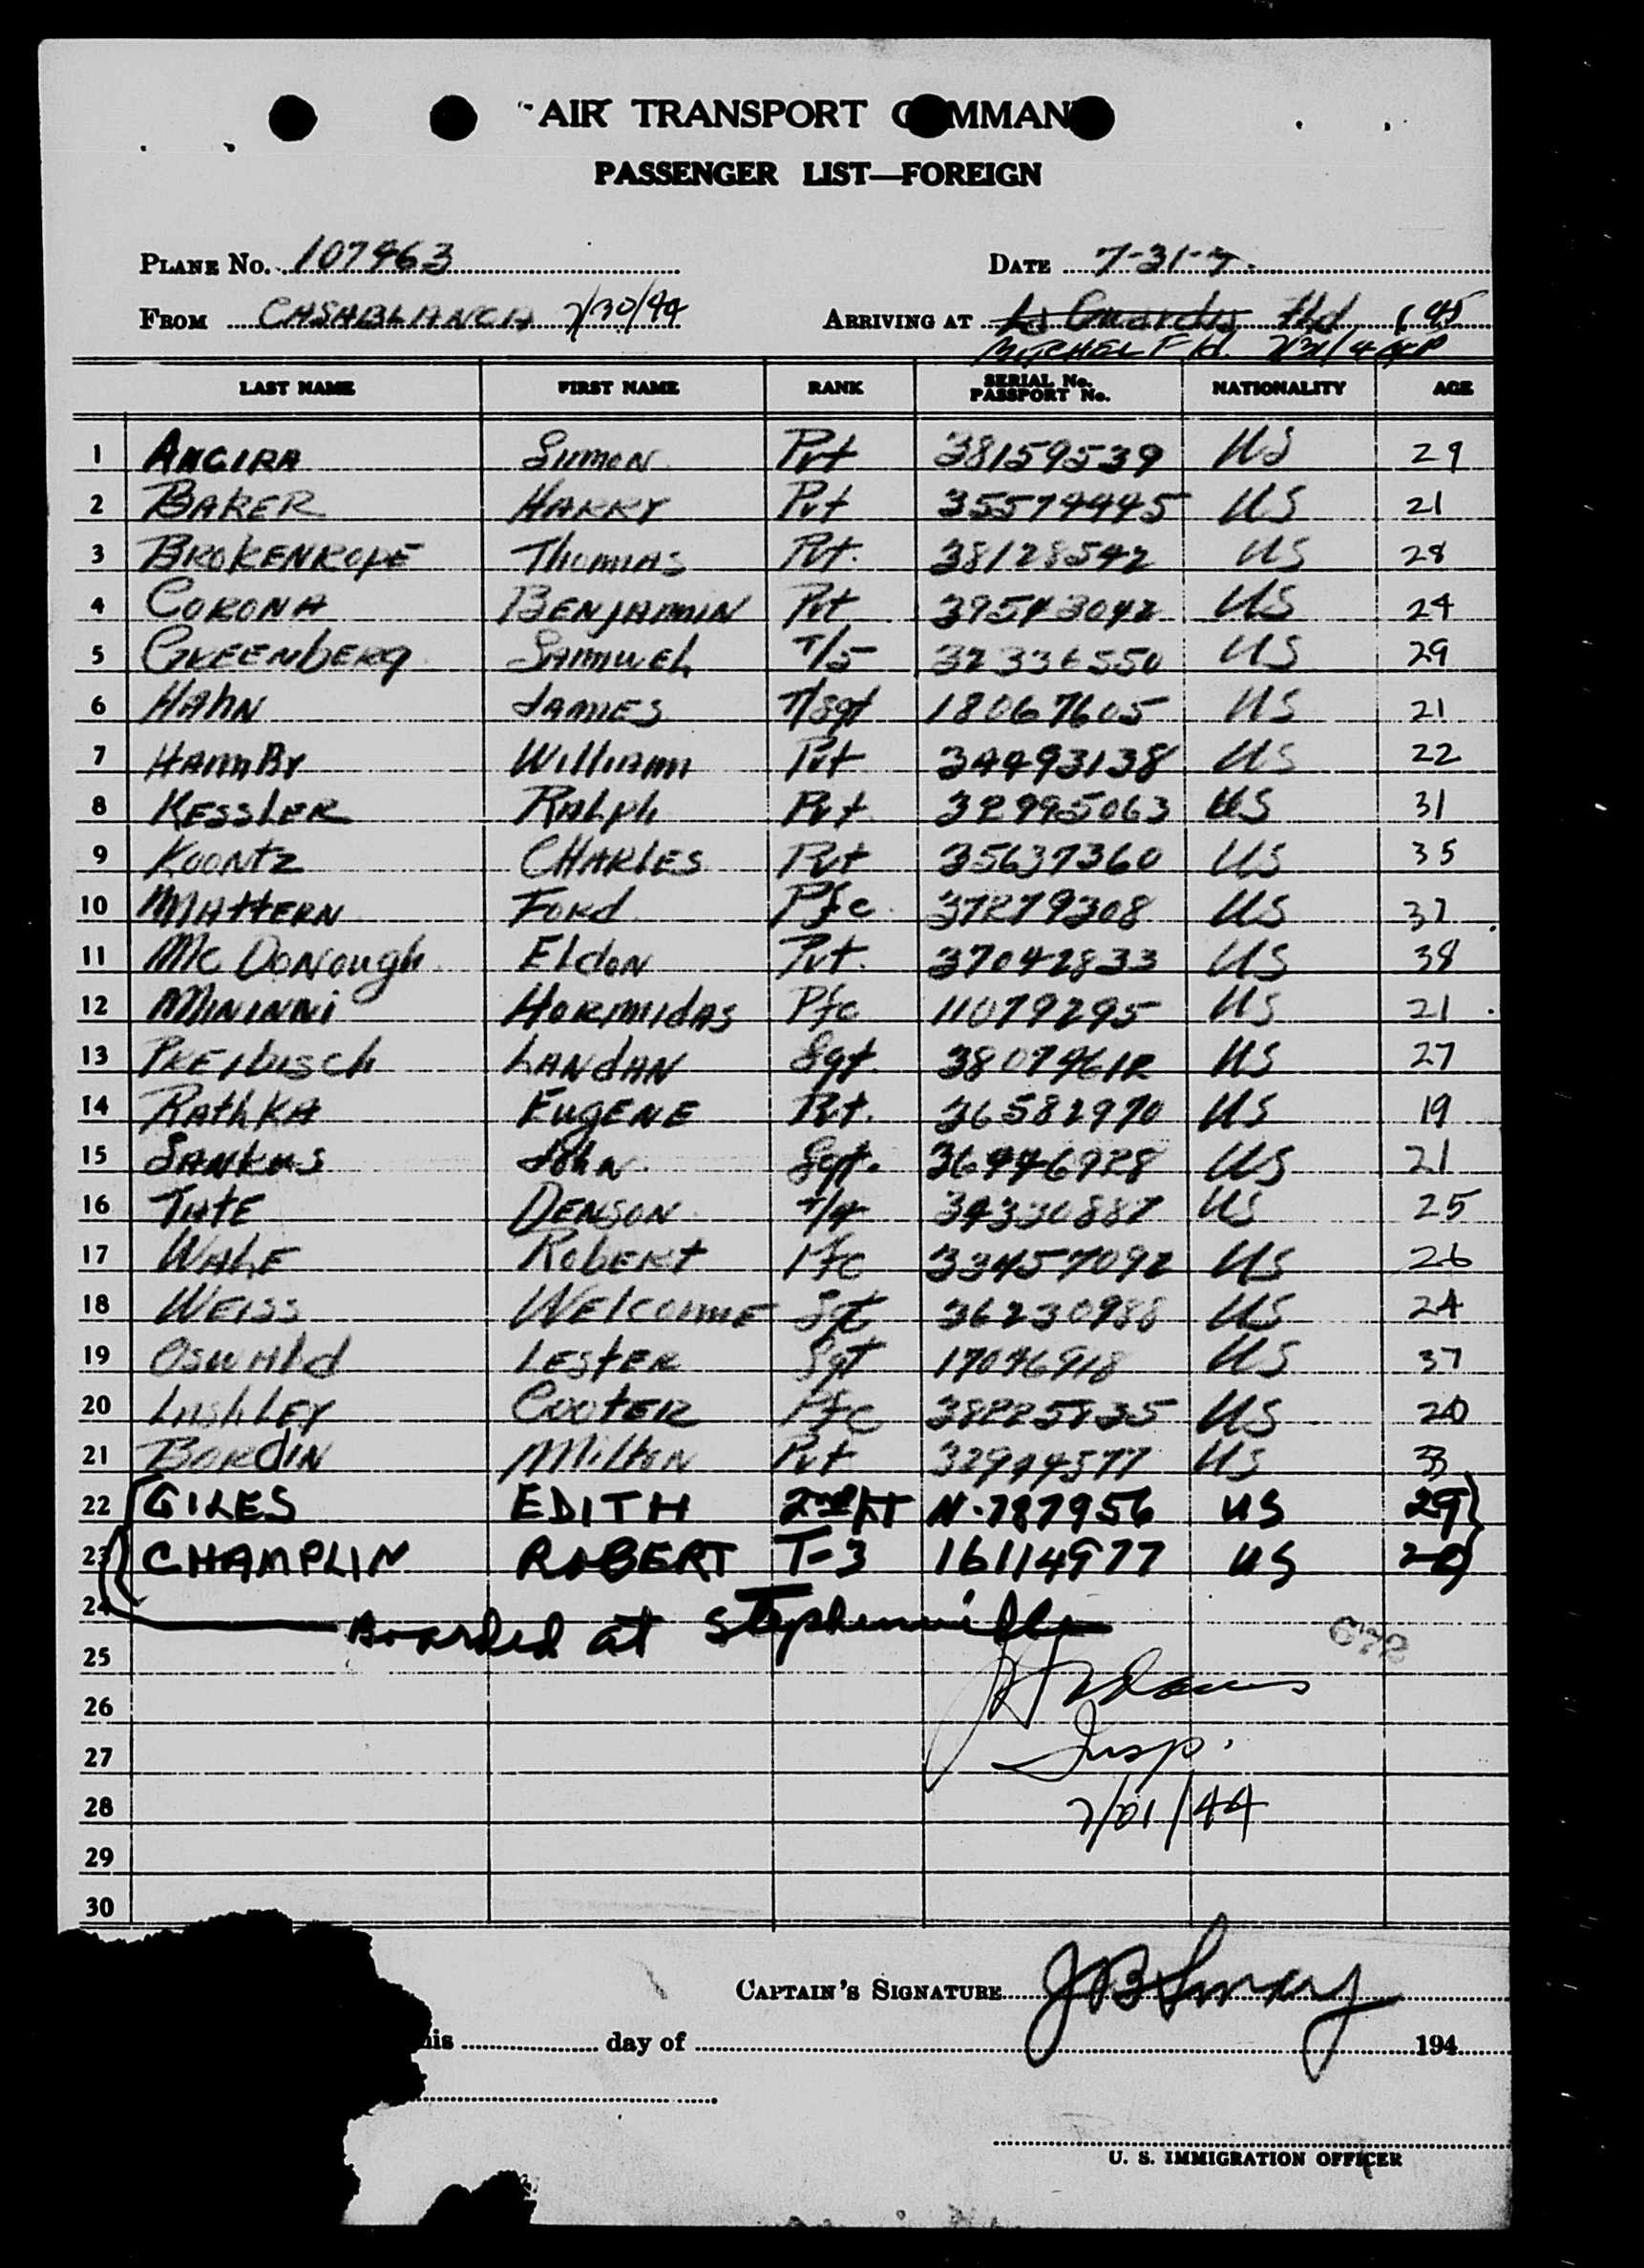 AIR TRANSPORT COMMAND
PASSENGER LIST—FOREIGN
PLANE No. 107463 DATE 7-31-
FROM CASABLANCA 7/30/44 ARRIVING AT La Guardia Fld
MITCHEL Fld.
LAST NAME FIRST NAME RANK SERIAL No. PASSPORT No. NATIONALITY AGE
1 ANCIRA Simon Pvt 38159539 US 29
2 BAKER HARRY Pvt 35574445 US 21
3 BROKENROPE THOMAS Pvt. 38128542 US 28
4 CORONA BENJAMIN Pvt 39543042 US 24
5 GREENbERg SAMUEL T/5 32336550 US 29
6 HAhN JAMES T/Sgt 18067605 US 21
7 HAMBY William Pvt 34493138 US 22
8 KESSLER RALph Pvt 32995063 US 31
9 KOONTZ CHARLES Pvt 35637360 US 35
10 MATTERN FORd Pfc 37279308 US 32
11 Mc DONOugh EldON Pvt. 37042833 US 38
12 MININNi HORMIdAS Pfc 11079295 US 21
13 PREIbisch LANdAN Sgt. 38074612 US 27
14 RAthKA EugENE Pvt. 36582970 US 19
15 SANKUS JohN Sgt. 36446928 US 21
16 TATE DENSON T/4 34330887 US 25
17 WALE RObERt Pfc 33457092 US 26
18 WEISS WELCOME Sgt 36230988 US 24
19 OSWALd LESTER Sgt 17046918 US 37
20 LAShLEY COOTER Pfc 38225835 US 20
21 BORdIN Milton Pvt 32944577 US 33
22 GILES EDITH 2nd LT N-787956 US 29
23 CHAMPLIN ROBERT T-3 16114977 US 20
24 Boarded at Stephenville
25
26
27 Insp.
28 7/31/44
29
30
CAPTAIN'S SIGNATURE
his day of 194
U. S. IMMIGRATION OFFICER